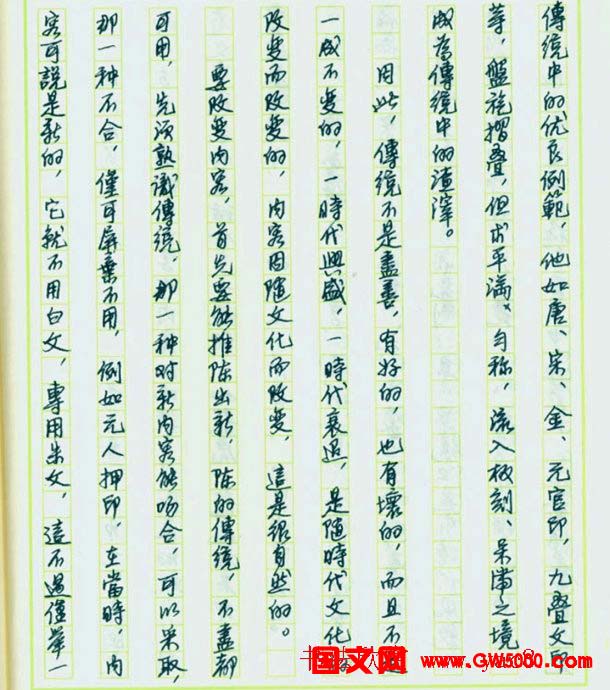 傳统中的优良例範，他如唐、宋、金、元官印，九疊文印
等，盤旋摺叠，但求平满、匀称，流入板刻、呆滯之境
成為傳统中的渣滓。
因此，傳统不是盡善，有好的，也有壞的，而且不是
一成不变的，一時代興盛，一時代衰退，是随時代文化
改变而改变的，内容因随文化而改变，這是很自然的。
要改变内容，首先要能推陈出新，陈的傳统，不盡都
可用，先须熟識傳统，那一种对新内容能吻合，可以采取，
那一种不合，僅可屏棄不用，例如元人押印，在當時，内
容可說是新的，它就不用白文，專用朱文，這不過僅舉一
国文网
www.GW5000.com